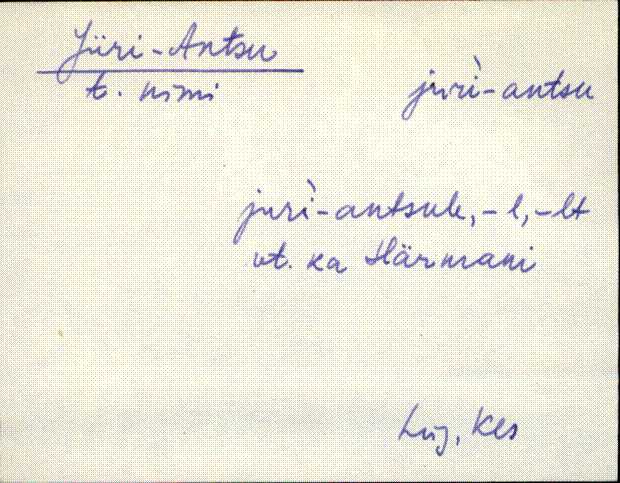 Jüri-Antsu
t. nimi
juri̇̀-antsu
juri̇̀-antsule, -l, -lt
vt. ka Härmani
Lüg, Kes